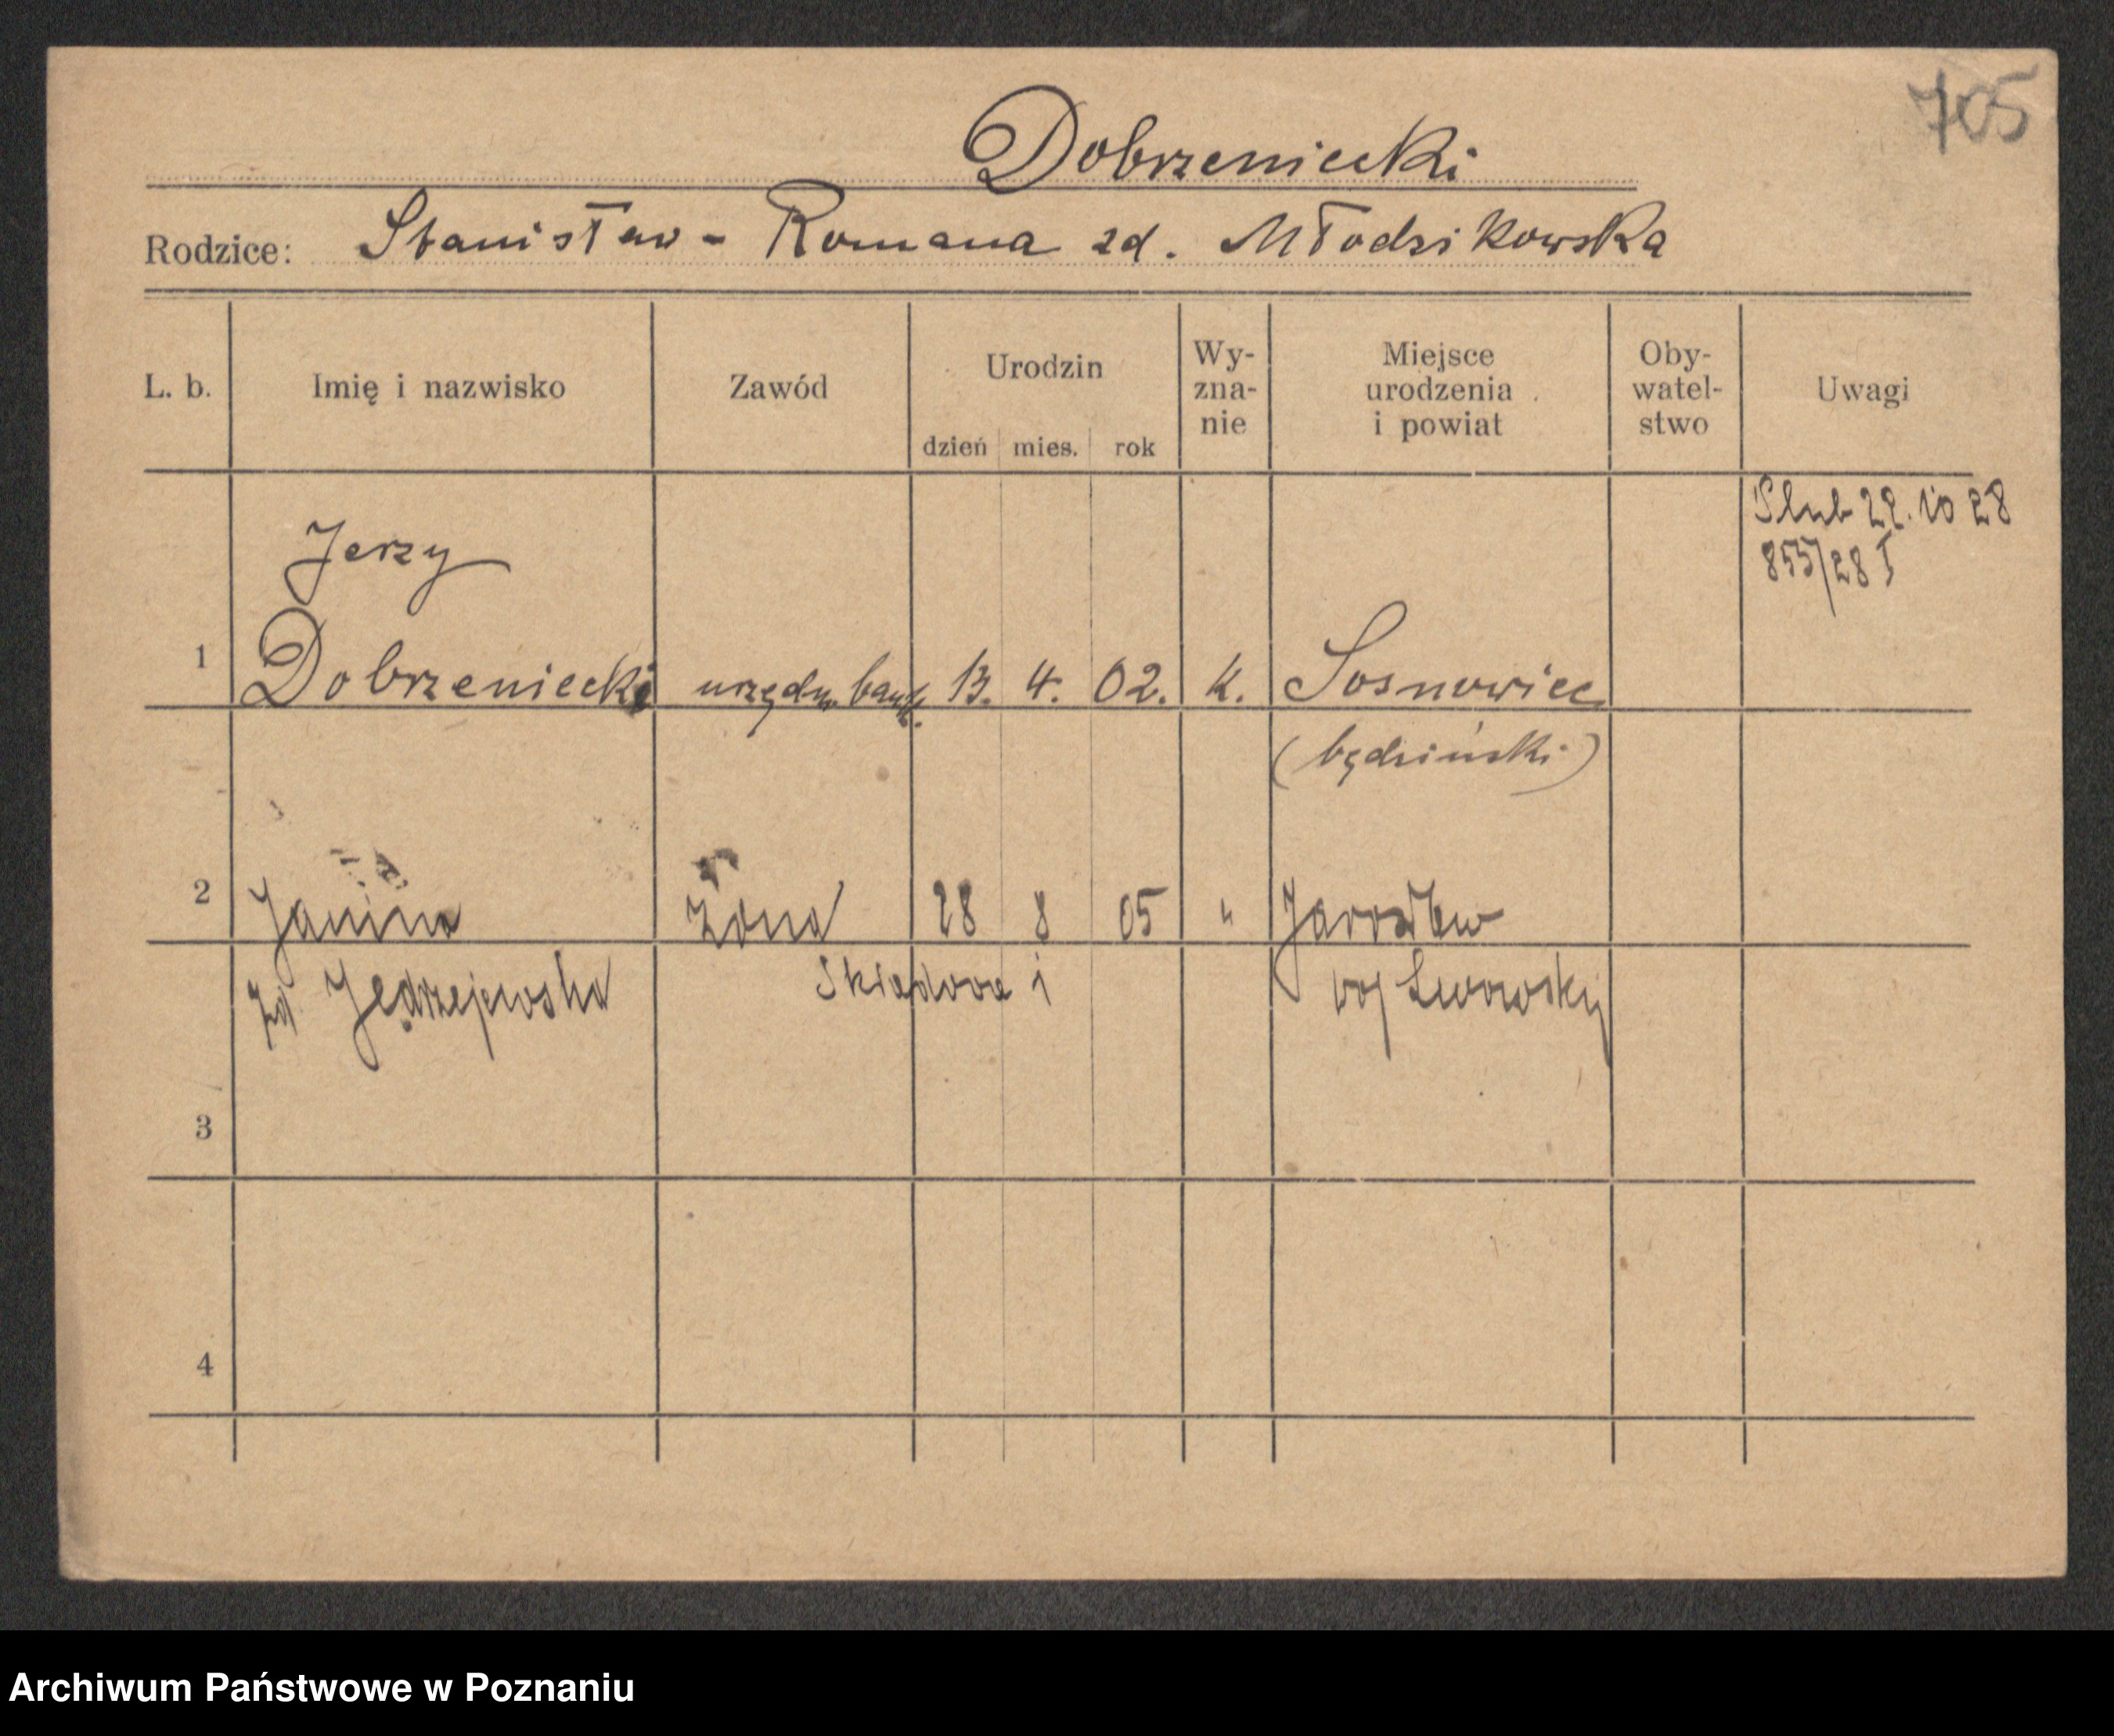 705
Dobrzeniecki
Rodzice: Stanisław - Romana zd. Młodzikowska
L. b. Imię i nazwisko Zawód Urodzin dzień mies. rok Wy-zna-nie Miejsce urodzenia i powiat Oby-watel-stwo Uwagi
Ślub 22. 10 28
855/28 I
Jerzy
1 Dobrzeniecki urzędn. bank. 13. 4. 02. k. Sosnowiec
(będziński)
2 Janina żona 28 8 05 " Jarosław
zd. Jędrzejewska woj Lwowskij
3
4
Archiwum Państwowe w Poznaniu